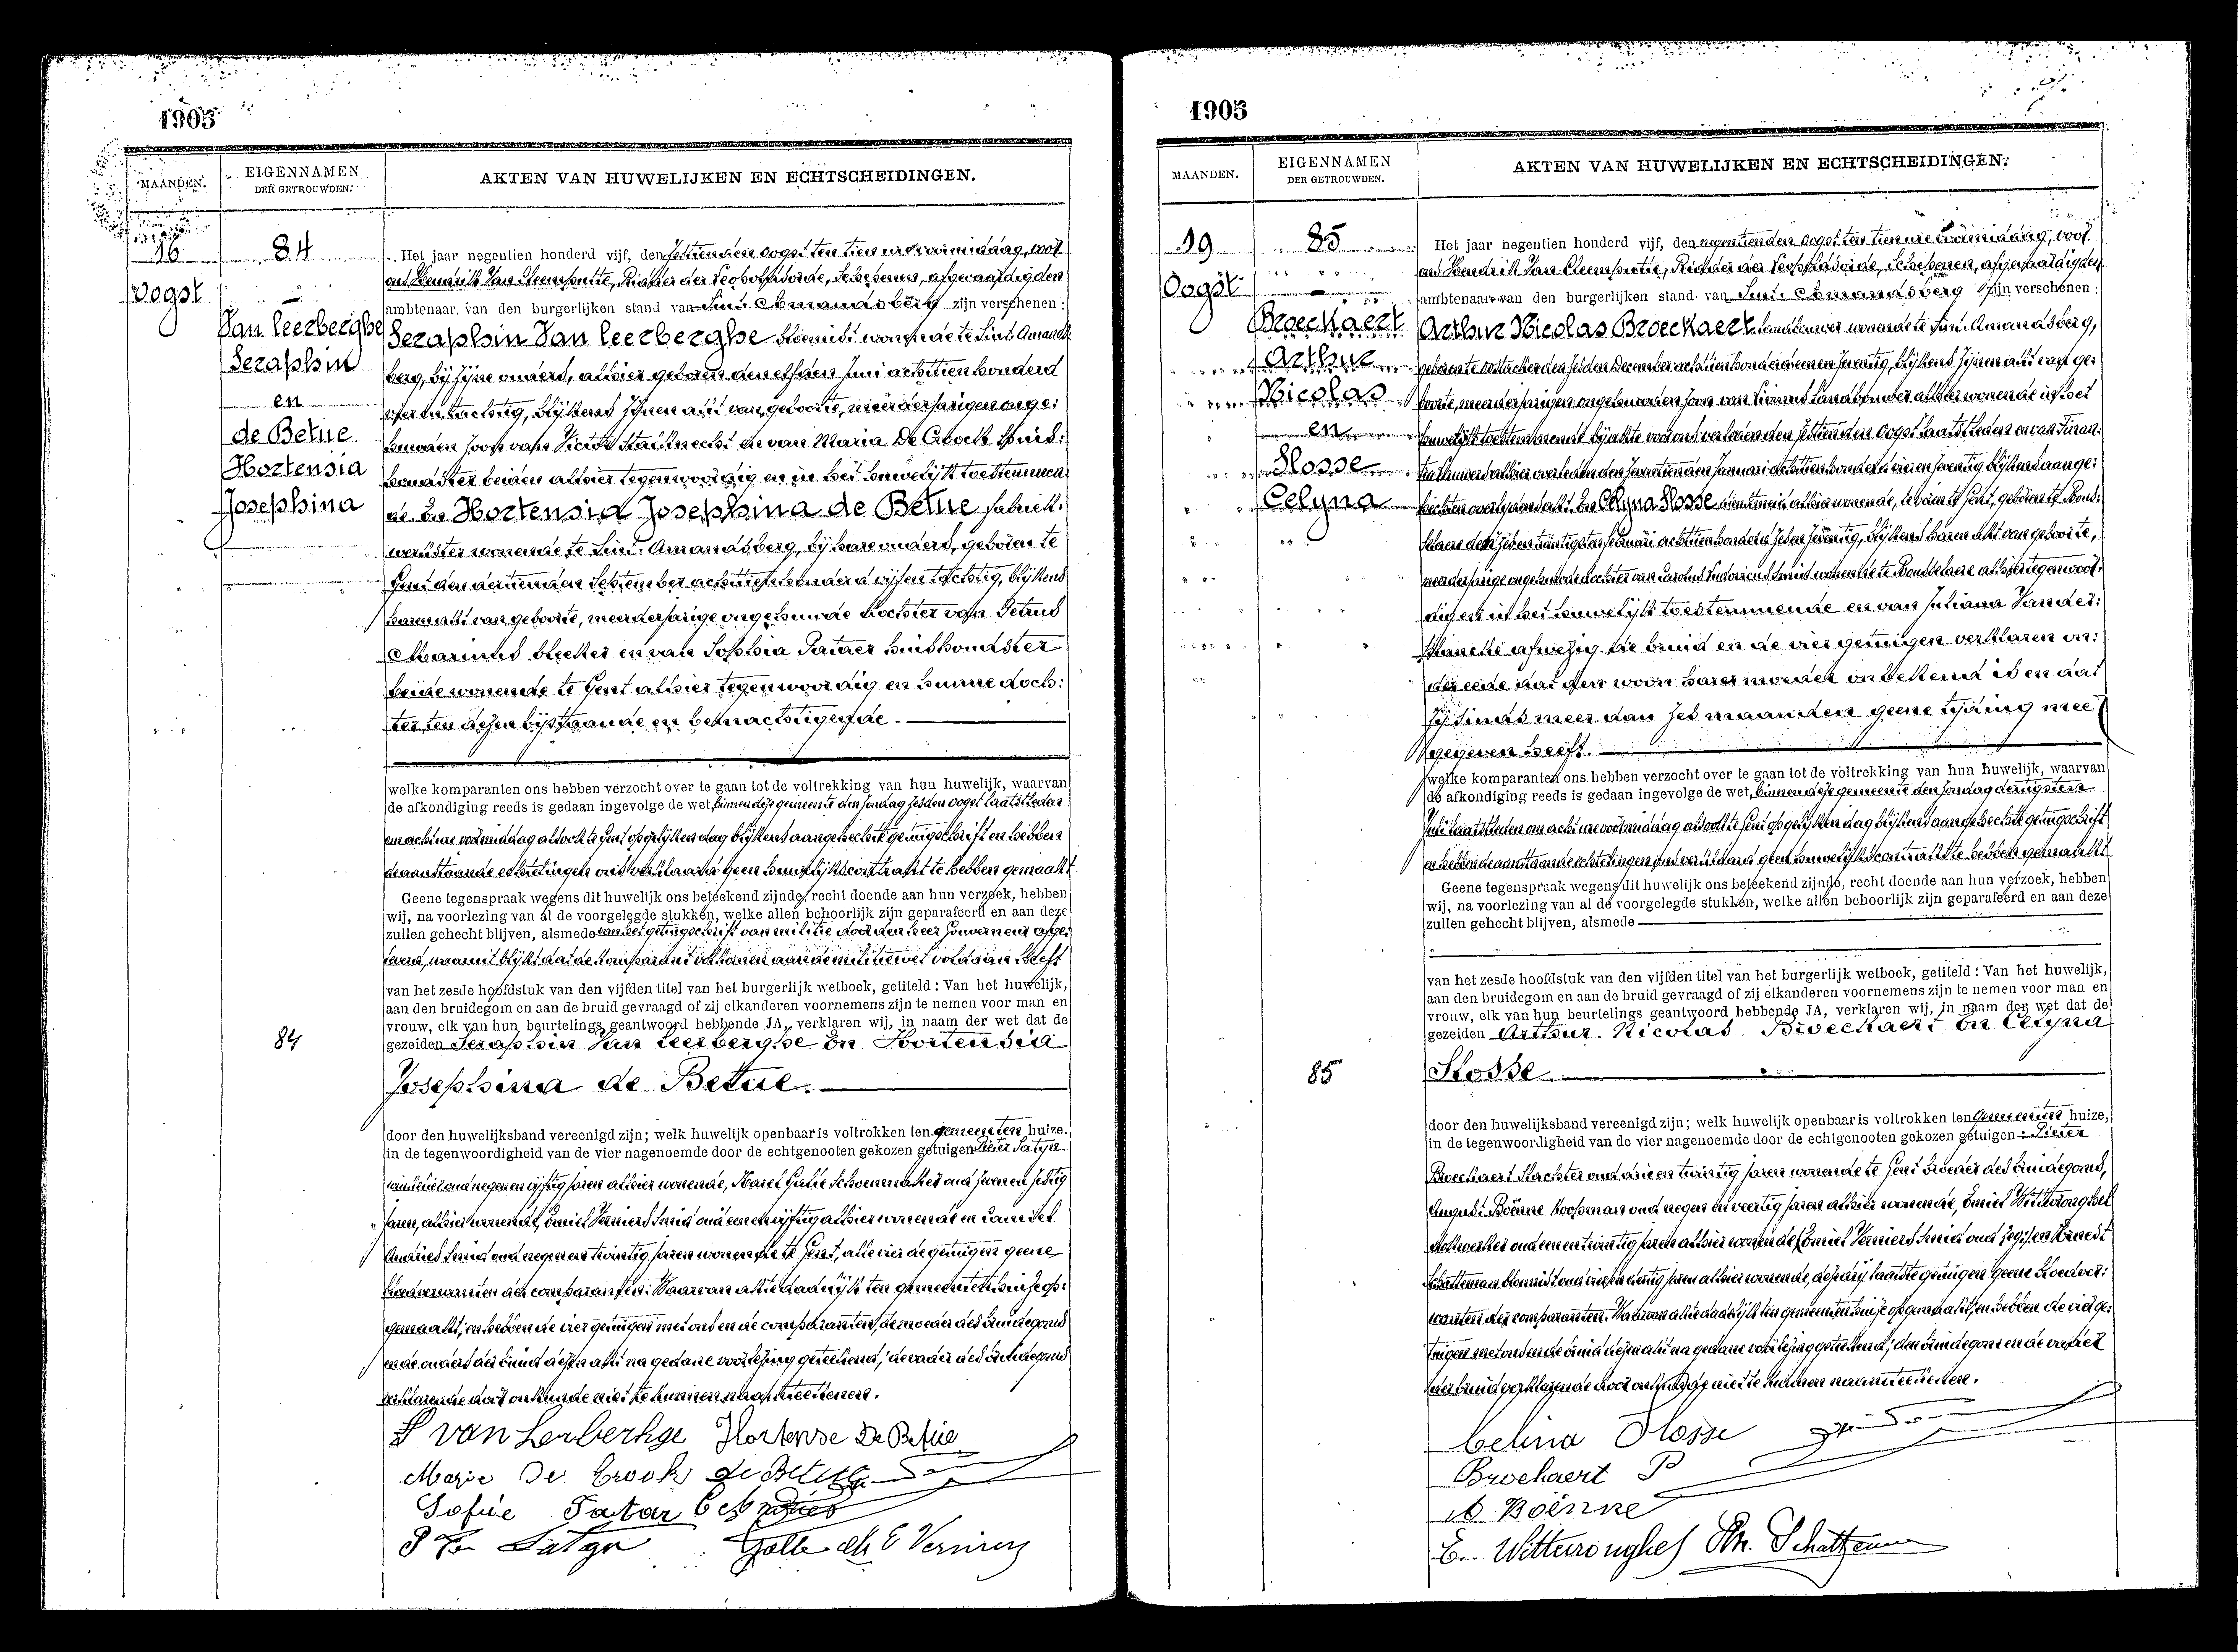 1905
MAANDEN.
EIGENNAMEN
DER GETROUWDEN.
AKTEN VAN HUWELIJKEN EN ECHTSCHEIDINGEN.
16
Oogst
84
Van Leerberghe
Seraphin
en
de Betue
Hortensia
Josephina
Het jaar negentien honderd vijf, den zestienden oogst ten tien ure voormiddag, voor
ons Hendrik Van Cleemputte, Ridder der Leopoldsorde, Schepenen, afgevaardigden
ambtenaar van den burgerlijken stand van Sint Amandsberg zijn verschenen:
Seraphin Van Leerberghe bloemist wonende te Sint Amands:
berg, bij zijne ouders, alhier geboren den elfden Juni achttien honderd
vier en tachtig, blijkens zijnen akt van geboorte, meerderjarigen onge:
huwden zoon van Victor Stalknecht en van Maria De Croock huis:
houdster beiden alhier tegenwoordig en in het huwelijk toestemmen:
de. En Hortensia Josephina de Betue fabriek:
werkster wonende te Sint Amandsberg, bij hare ouders, geboren te
Gent den dertienden September achttien honderd vijf en tachtig, blijkens
haren akt van geboorte, meerderjarige ongehuwde dochter van Petrus
Marinus bleeker en van Sophia Tataer huishoudster
beide wonende te Gent alhier tegenwoordig en hunne doch:
ter ten dezen bijstaande en bemachtigende.
welke komparanten ons hebben verzocht over te gaan tot de voltrekking van hun huwelijk, waarvan
de afkondiging reeds is gedaan ingevolge de wet, binnen deze gemeente den zondag zesden oogst laatstleden
om acht ure voormiddag alsook te Gent op gelijken dag blijkens aangehechte getuigschrift en hebben
de aanstaande echtelingen ons verklaard geen huwelijkscontrakt te hebben gemaakt.
Geene tegenspraak wegens dit huwelijk ons beteekend zijnde, recht doende aan hun verzoek, hebben
wij, na voorlezing van al de voorgelegde stukken, welke allen behoorlijk zijn geparafeerd en aan deze
zullen gehecht blijven, alsmede van het getuigschrift van militie door den heer Gouverneur afge:
leverd, waaruit blijkt dat de komparant voldaan aan de militiewet voldaan heeft
van het zesde hoofdstuk van den vijfden titel van het burgerlijk wetboek, getiteld: Van het huwelijk,
aan den bruidegom en aan de bruid gevraagd of zij elkanderen voornemens zijn te nemen voor man en
vrouw, elk van hun beurtelings geantwoord hebbende JA, verklaren wij, in naam der wet dat de
84
gezeiden Seraphin Van Leerberghe En Hortensia
Josephina de Betue.
door den huwelijksband vereenigd zijn; welk huwelijk openbaar is voltrokken ten gemeenten huize.
in de tegenwoordigheid van de vier nagenoemde door de echtgenooten gekozen getuigen Pieter Satyn
oud negen en vijftig jaren alhier wonende, Marcl Galle Schoenmaker oud zeven en zestig
jaren, alhier wonende, Emiel Verniers Smid oud een en vijftig alhier wonende en Camiel
Andries Smid oud negen en twintig jaren wonende te Gent, alle vier de getuigen geene
bloedverwanten der comparanten. Waarvan akte dadelijk ten gemeenten huize op:
gemaakt, en hebben de vier getuigen met ons en de comparanten, de moeder des bruidegoms
en de ouders der bruid dezen akt na gedane voorlezing geteekend; de vader des bruidegoms
verklarende door onkunde niet te kunnen naamteekenen.
S van Lerberhge Hortense De Betue
Marie De Crook de Betue
Sofiie Tatar C Andries
Satyn Galle M E Verniers
1905
MAANDEN.
EIGENNAMEN
DER GETROUWDEN.
AKTEN VAN HUWELIJKEN EN ECHTSCHEIDINGEN.
19
Oogst
85
Broeckaert
Arthur
Nicolas
en
Slosse
Celyna
Het jaar negentien honderd vijf, den negentienden Oogst ten tien ure voormiddag, voor
ons Hendrik Van Cleemputte, Ridder der Leopoldsorde, Schepenen, afgevaardigden
ambtenaar van den burgerlijken stand van Sint Amandsberg zijn verschenen:
Arthur Nicolas Broeckaert landbouwer wonende te Sint Amandsberg,
geboren te Oostacker den zesden December achttien honderd een en zeventig, blijkens zijnen akt van ge:
boorte, meerderjarigen ongehuwden zoon van Livinus landbouwer alhier wonende in het
huwelijk toestemmende bij akte voor ons verleden den zestienden oogst laatstleden en van
alhier overleden den zeventienden Januari achttien honderd vier en zeventig blijkens aange:
hechten overlijdensakt. En Celyna Slosse dienstmeid alhier wonende, te voren te Gent, geboren te Rous:
selaere den zeven twintigsten februari achttien honderd zeven zeventig, blijkens haren akt van geboorte,
meerderjarige ongehuwde dochter van Carolus Ludovicus Smid wonende te Rousselaere alhier tegenwoor:
dig en in het huwelijk toestemmende en van Juliana Vander:
afwezig. De bruid en de vier getuigen verklaren on:
der eede dat den woon harer moeder onbekend is en dat
zij sinds meer dan zes maanden geene tijding mee
gegeven heeft.
welke komparanten ons hebben verzocht over te gaan tot de voltrekking van hun huwelijk, waarvan
de afkondiging reeds is gedaan ingevolge de wet, binnen deze gemeente den zondag dertigsten
Juli laatstleden om acht ure voormiddag alsook te Gent op gelijken dag blijkens aangehechte getuigschrift
en hebben de aanstaande echtelingen ons verklaard geen huwelijkscontrakt te hebben gemaakt
Geene tegenspraak wegens dit huwelijk ons beteekend zijnde, recht doende aan hun verzoek, hebben
wij, na voorlezing van al de voorgelegde stukken, welke allen behoorlijk zijn geparafeerd en aan deze
zullen gehecht blijven, alsmede
van het zesde hoofdstuk van den vijfden titel van het burgerlijk wetboek, getiteld: Van het huwelijk,
aan den bruidegom en aan de bruid gevraagd of zij elkanderen voornemens zijn te nemen voor man en
vrouw, elk van hun beurtelings geantwoord hebbende JA, verklaren wij, in naam der wet dat de
gezeiden Arthur Nicolas Broeckaert En Celyna
85
Slosse.
door den huwelijksband vereenigd zijn; welk huwelijk openbaar is voltrokken ten Gemeenten huize,
in de tegenwoordigheid van de vier nagenoemde door de echtgenooten gekozen getuigen: Pieter
Broeckaert Slachter oud drie en twintig jaren wonende te Gent broeder des bruidegoms,
August Boënne koopman oud negen en veertig jaren alhier wonende, Emiel Wittevronghel
oud een en twintig jaren alhier wonende, Emiel Verniers Smid oud en Ernest
Schatteman bloemist oud vier en dertig jaren alhier wonende, dezen drij laatste getuigen geene bloedver:
wanten der comparanten. Waarvan akte dadelijk ten gemeenten huize opgemaakt, en hebben de vier ge:
tuigen met ons en de bruid dezen akt na gedane voorlezing geteekend; den bruidegom en de vader
der bruid verklarende door onkunde niet te kunnen naamteekenen.
Celina Slosse
Broekaert P
A Boënne
E. Witteronghel Schatteman